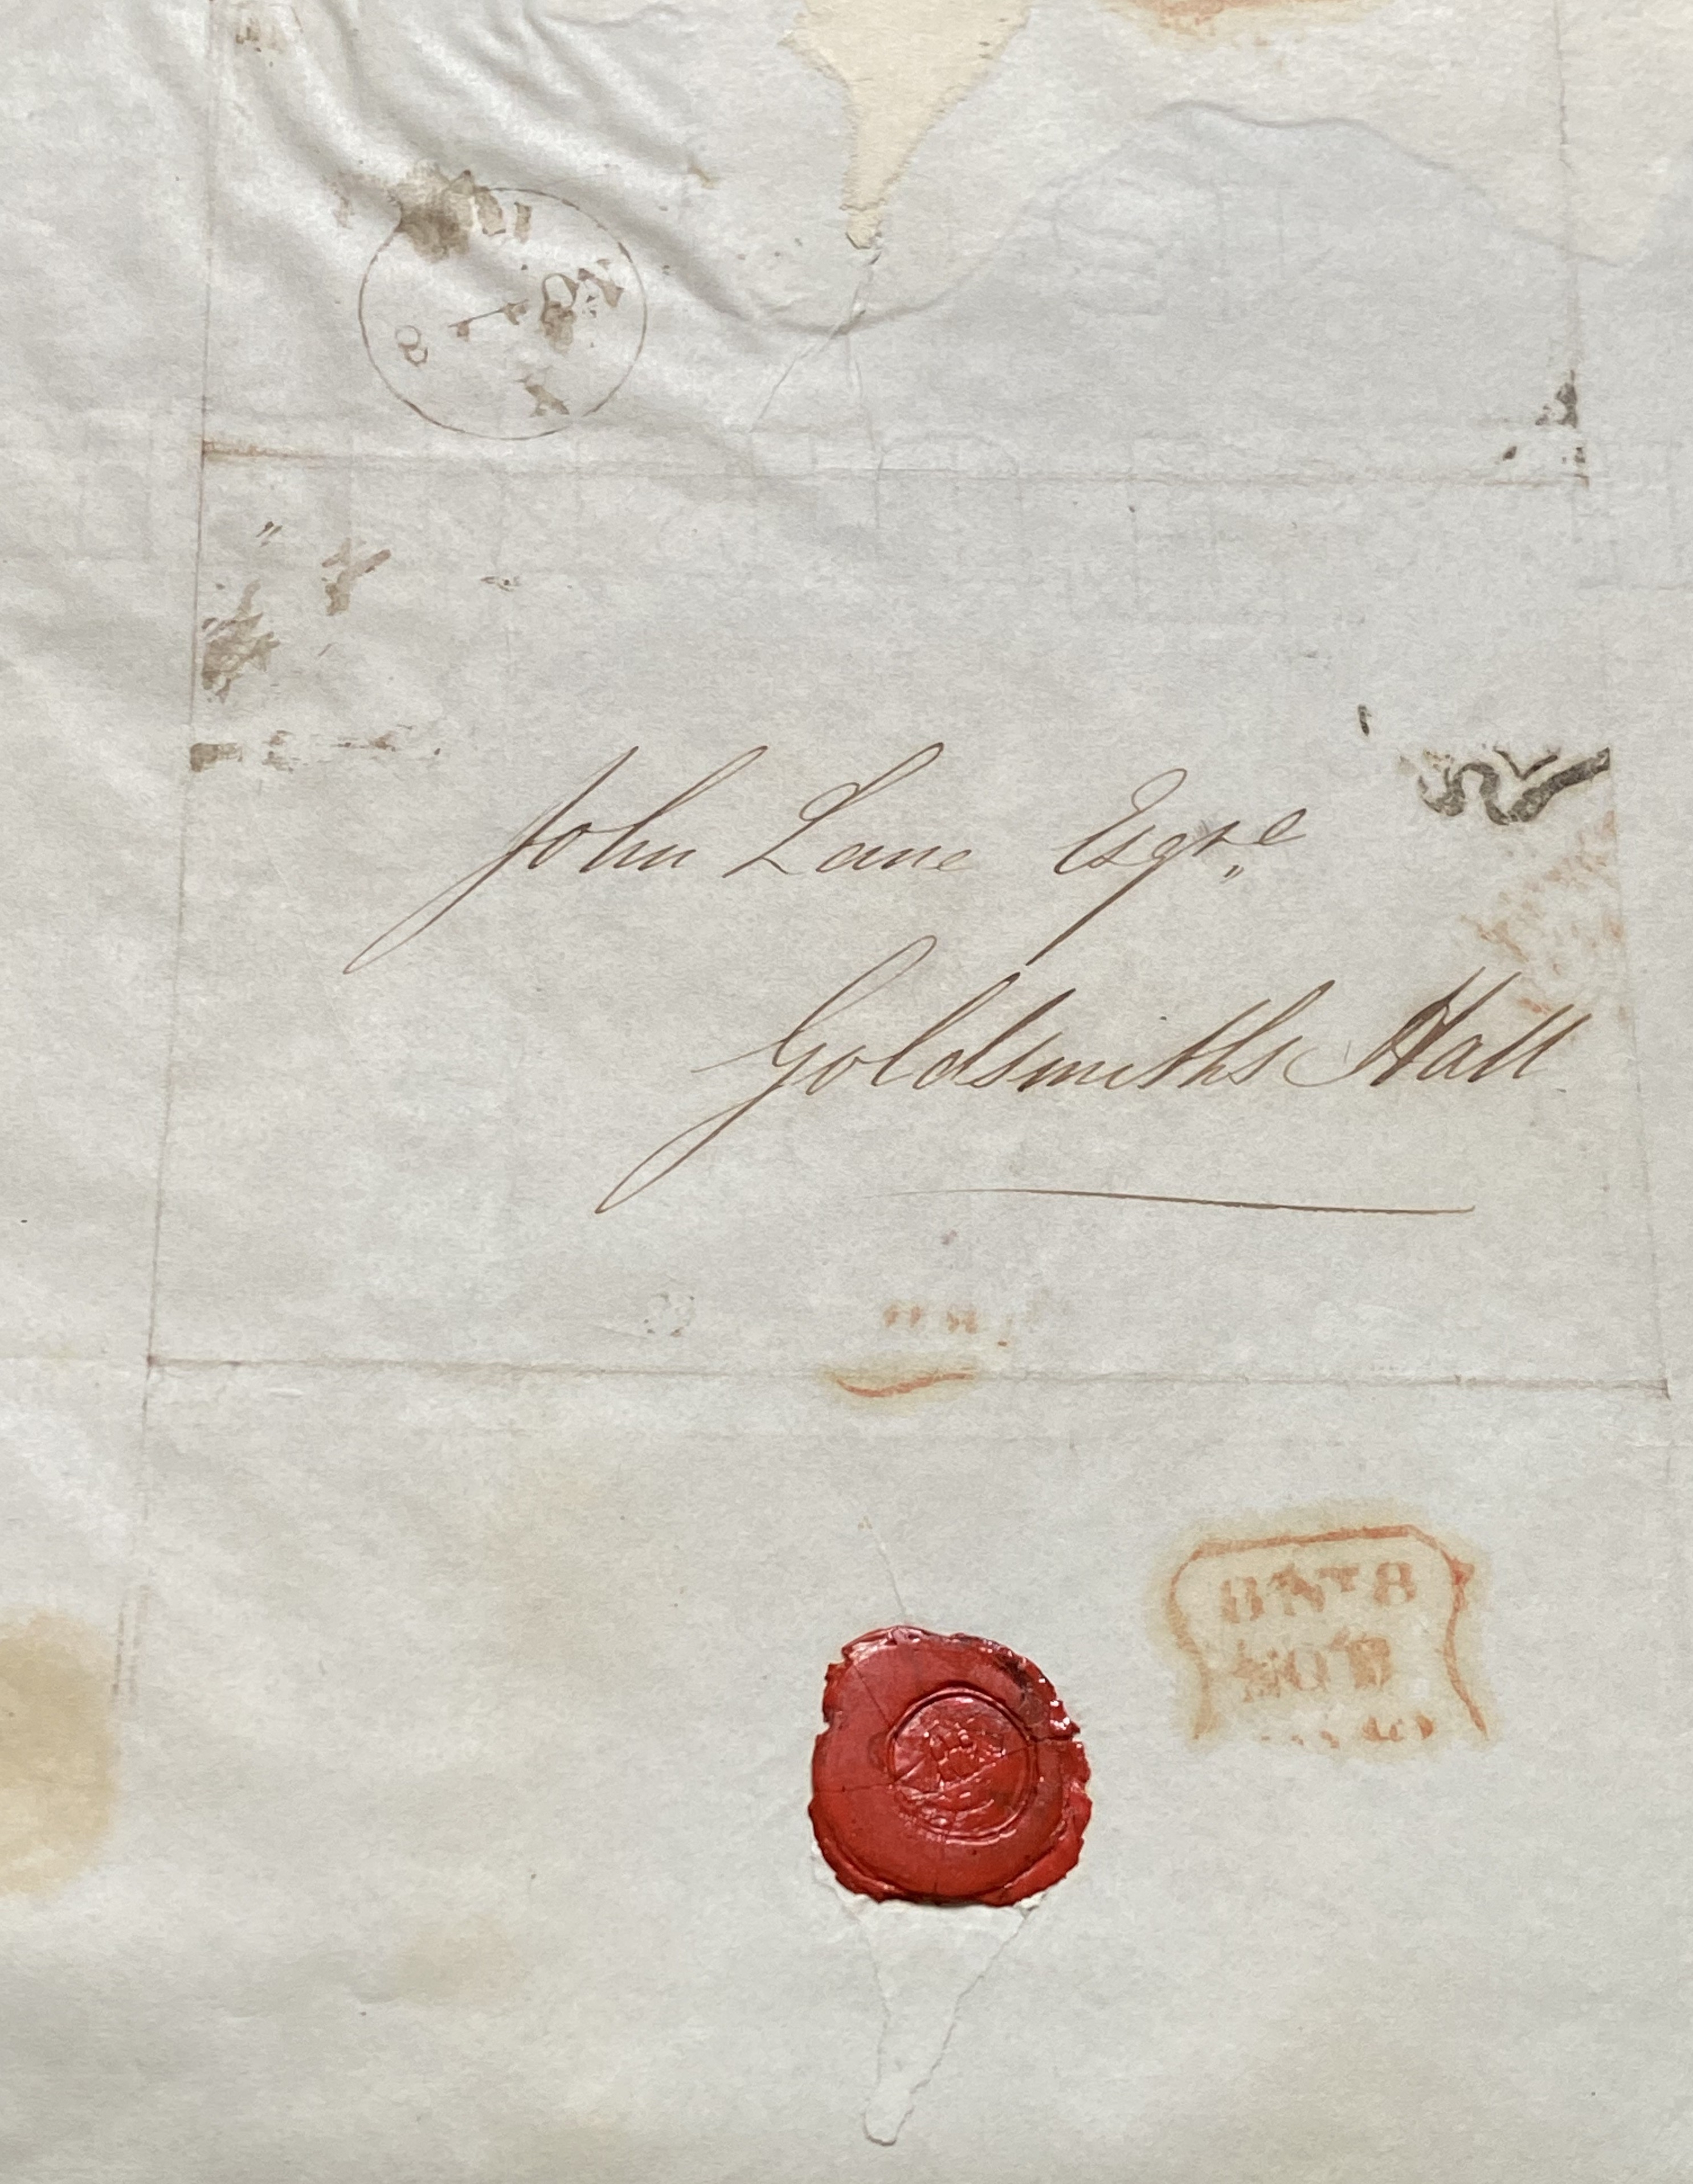 NO
8
John Lane Esqre
Goldsmiths Hall
8 Nt 8
NO